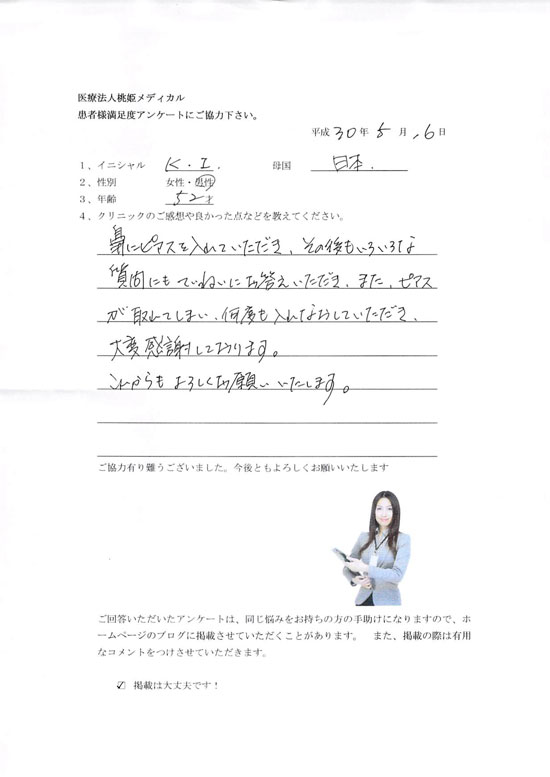 医療法人桃姫メディカル
患者様満足度アンケートにご協力下さい。
平成 30 年 5 月 .6 日
1、イニシャル K.I. 母国 日本.
2、性別 女性・男性
3、年齢 52才
4、クリニックのご感想や良かった点などを教えてください。
鼻にピアスを入れていただき、その後もいろいろな
質問にもていねいにお答えいただき、また、ピアス
が取れてしまい、何度も入れなおしていただき、
大変感謝しております。
これからもよろしくお願いいたします。
ご協力有り難うございました。今後ともよろしくお願いいたします
ご回答いただいたアンケートは、同じ悩みをお持ちの方の手助けになりますので、ホ
ームページのブログに掲載させていただくことがあります。 また、掲載の際は有用
なコメントをつけさせていただきます。
☑ 掲載は大丈夫です！